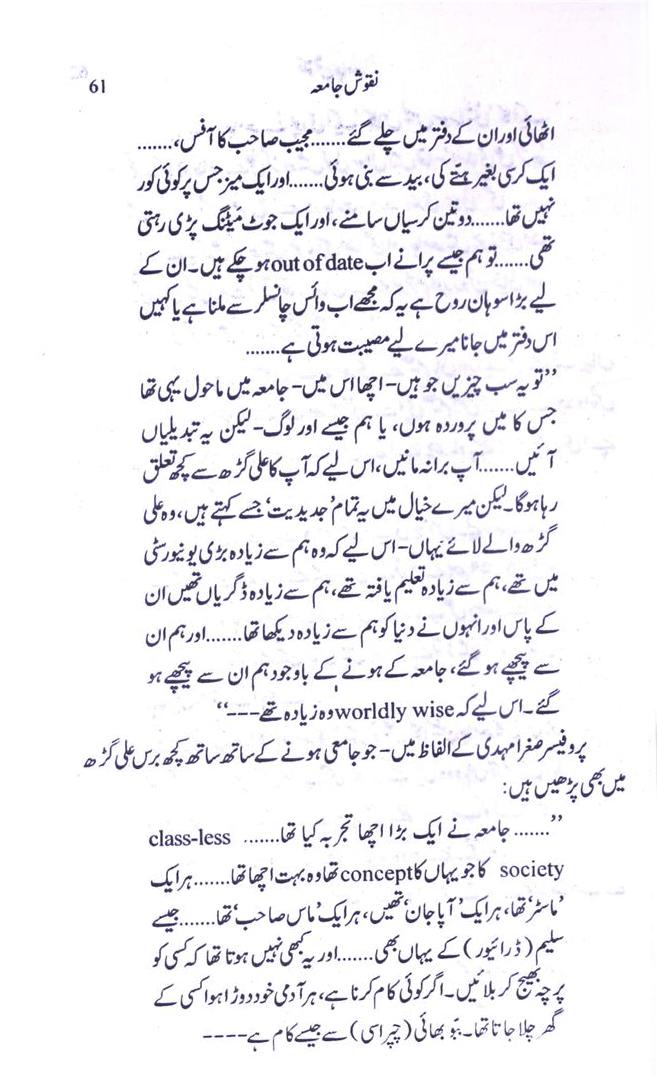 نقوش جامعہ 61
اٹھائی اور ان کے دفتر میں چلے گئے.......مجیب صاحب کا آفس،........
ایک کرسی بغیر ہتّے کی، بید سے بنی ہوئی......اور ایک میز جس پر کوئی کور
نہیں تھا.......دو تین کرسیاں سامنے، اور ایک جوٹ میٹنگ پڑی رہتی
تھی.......تو ہم جیسے پرانے اب out of date ہو چکے ہیں۔ ان کے
لیے بڑا سوہان روح ہے یہ کہ مجھے اب وائس چانسلر سے ملنا ہے یا کہیں
اس دفتر میں جانا میرے لیے مصیبت ہوتی ہے.......
’’تو یہ سب چیزیں جو ہیں- اچھا اس میں- جامعہ میں ماحول یہی تھا
جس کا میں پروردہ ہوں، یا ہم جیسے اور لوگ- لیکن یہ تبدیلیاں
آئیں.......آپ برا نہ مانیں، اس لیے کہ آپ کا علی گڑھ سے کچھ تعلق
رہا ہوگا۔ لیکن میرے خیال میں یہ تمام ’جدیدیت‘ جسے کہتے ہیں، وہ علی
گڑھ والے لائے یہاں- اس لیے کہ وہ ہم سے زیادہ بڑی یونیورسٹی
میں تھے، ہم سے زیادہ تعلیم یافتہ تھے، ہم سے زیادہ ڈگریاں تھیں ان
کے پاس اور انہوں نے دنیا کو ہم سے زیادہ دیکھا تھا.......اور ہم ان
سے پیچھے ہو گئے، جامعہ کے ہونے کے باوجود ہم ان سے پیچھے ہو
گئے۔ اس لیے کہ worldly wise وہ زیادہ تھے---‘‘
پروفیسر صغرا مہدی کے الفاظ میں- جو جامعی ہونے کے ساتھ ساتھ کچھ برس علی گڑھ
میں بھی پڑھیں ہیں:
’’.......جامعہ نے ایک بڑا اچھا تجربہ کیا تھا....... class-less
society کا جو یہاں کا concept تھا وہ بہت اچھا تھا.......ہر ایک
’ماسٹر‘ تھا، ہر ایک ’آپا جان‘ تھیں، ہر ایک ’ماس صاحب‘ تھا.......جیسے
سلیم (ڈرائیور) کے یہاں بھی.......اور یہ کبھی نہیں ہوتا تھا کہ کسی کو
پرچہ بھیج کر بلائیں۔ اگر کوئی کام کرنا ہے، ہر آدمی خود دوڑا ہوا کسی کے
گھر چلا جاتا تھا۔ ببّو بھائی (چپراسی) سے جیسے کام ہے----